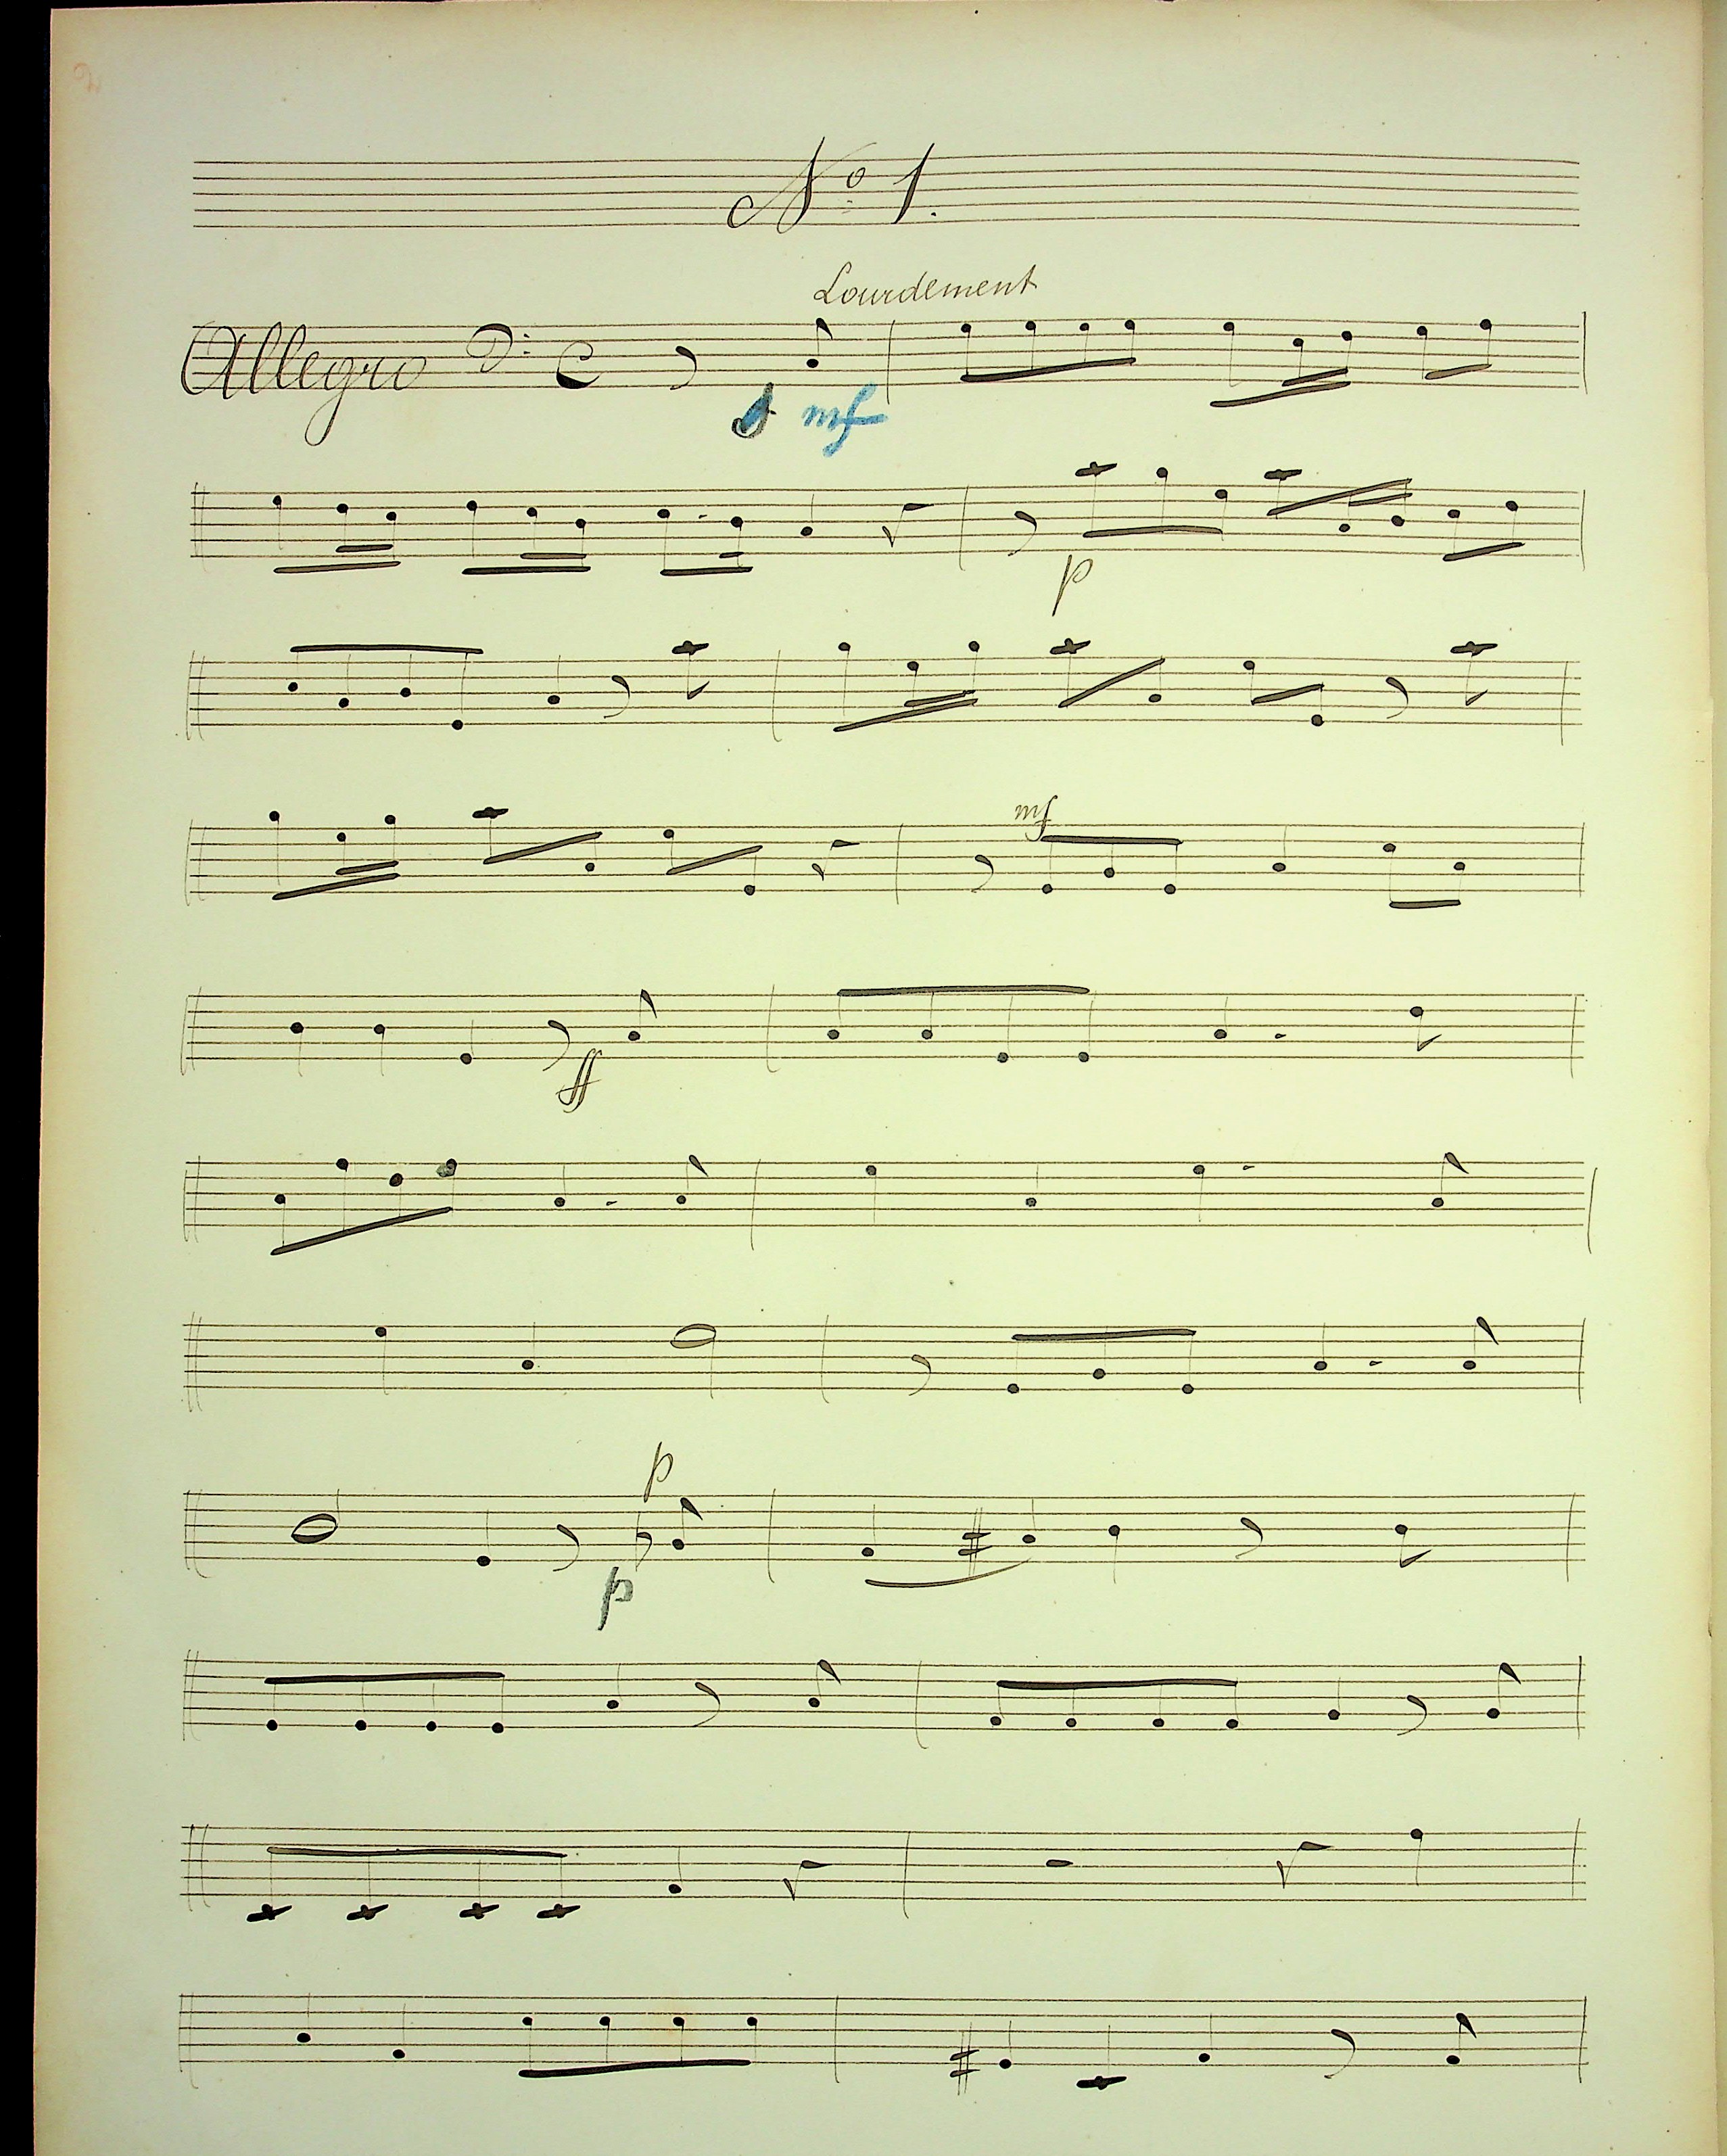 2
Nº 1.
Lourdement
Allegro
mf
p
mf
ff
p
p